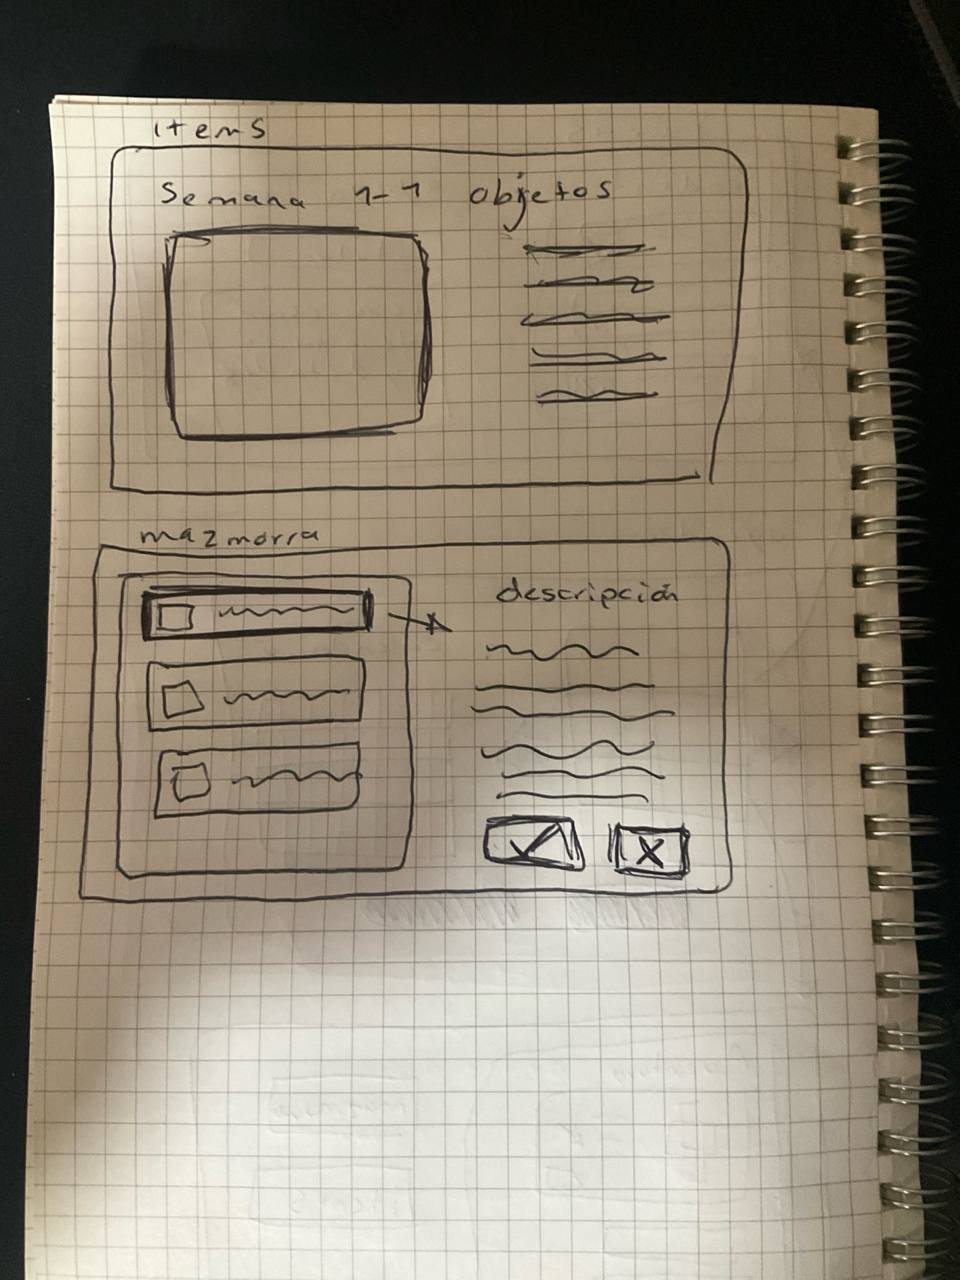 items
Semana 1-1 objetos
mazmorra
descripción
X